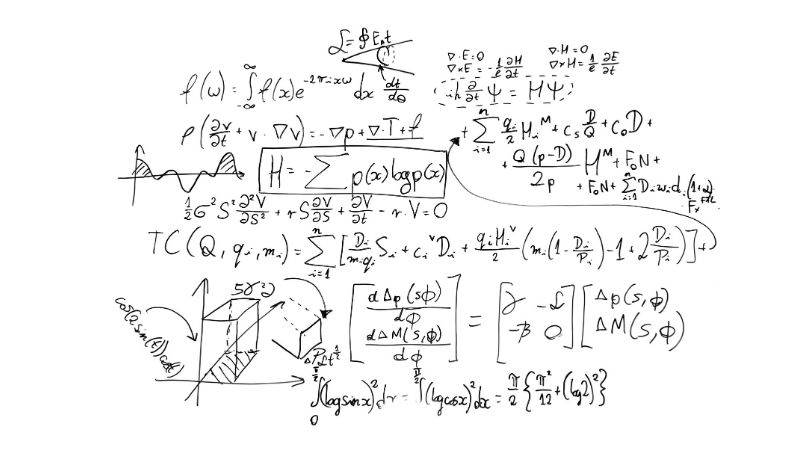 L = ∮ E_n t
∇·E=0
∇·H=0
∇×E = -1/c ∂H/∂t
∇×H = 1/c ∂E/∂t
f(ω) = ∫_{-∞}^{∞} f(x)e^{-2πixω} dx
dt/dθ
iħ ∂/∂t Ψ = HΨ
ρ(∂v/∂t + v · ∇v) = -∇p + ∇·T + f
+ ∑_{i=1}^{n} q_i/2 H_i^M + c_s D/Q + c_o D +
H = -∑ p(x) log p(x)
+ Q(p-D)/2p H^M + F_o N +
+ F_o N + ∑_{i=1}^{n} D_i w_i d
1/2 σ² S² ∂²V/∂S² + r S ∂V/∂S + ∂V/∂t - r · V = 0
TC(Q, q_i, m_i) = ∑_{i=1}^{n} [D_i/(m_i q_i) S_i + c_i^v D_i + q_i H_i^v/2 (m_i(1 - D_i/P_i) - 1 + 2 D_i/P_i)] +
[dΔp(s,ϕ)/dϕ ; dΔM(s,ϕ)/dϕ] = [γ -α ; -β 0] [Δp(s,ϕ) ; ΔM(s,ϕ)]
∫_0^{π/2} (log sin x)² dx = ∫^{π/2} (log cos x)² dx = π/2 {π²/12 + (log 2)²}